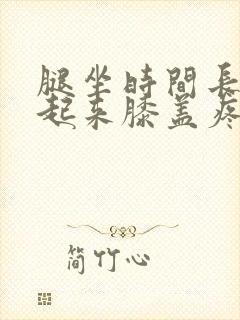 腿坐時間長
起来膝盖疼
简竹心